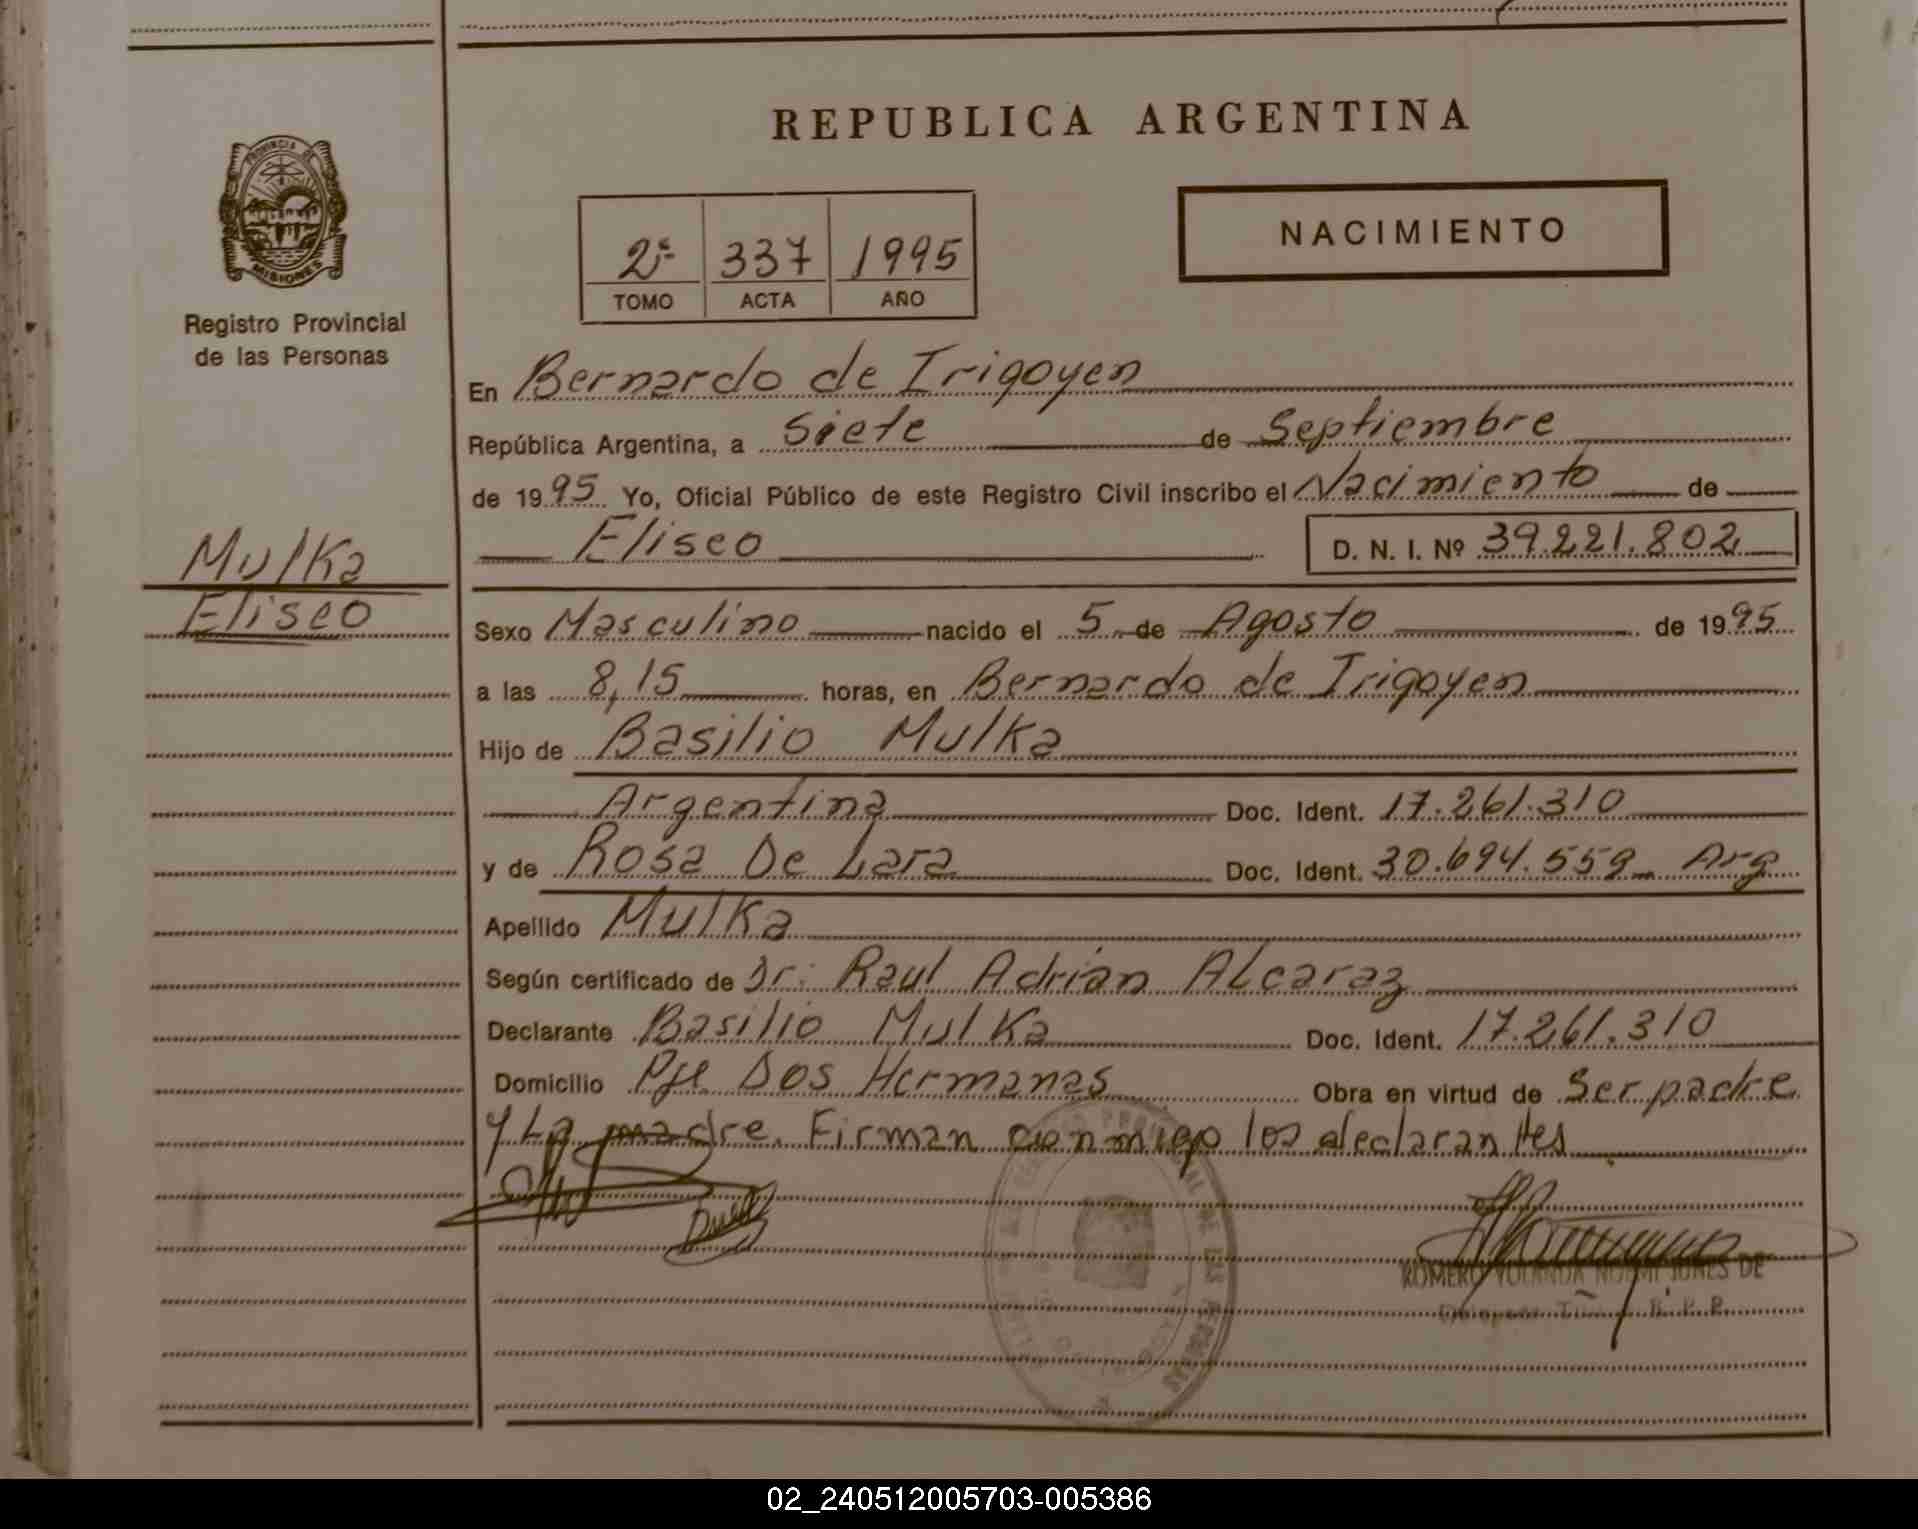 REPUBLICA ARGENTINA
PROVINCIA DE
MISIONES
Registro Provincial
de las Personas
2º 337 1995
TOMO ACTA AÑO
NACIMIENTO
En Bernardo de Irigoyen
República Argentina, a Siete de Septiembre
de 1995 Yo, Oficial Público de este Registro Civil inscribo el Nacimiento de
Eliseo D. N. I. Nº 39.221.802
Mulka
Eliseo
Sexo Masculino nacido el 5 de Agosto de 1995
a las 8,15 horas, en Bernardo de Irigoyen
Hijo de Basilio Mulka
Argentina Doc. Ident. 17.261.310
y de Rosa De Lara Doc. Ident. 30.694.559 Arg
Apellido Mulka
Según certificado de Dr: Raul Adrián Alcaraz
Declarante Basilio Mulka Doc. Ident. 17.261.310
Domicilio Pje Dos Hermanas Obra en virtud de Ser padre
y La madre. Firman conmigo los declarantes
ROMERO YOLANDA NOEMI DE
R. P. P.
02_240512005703-005386